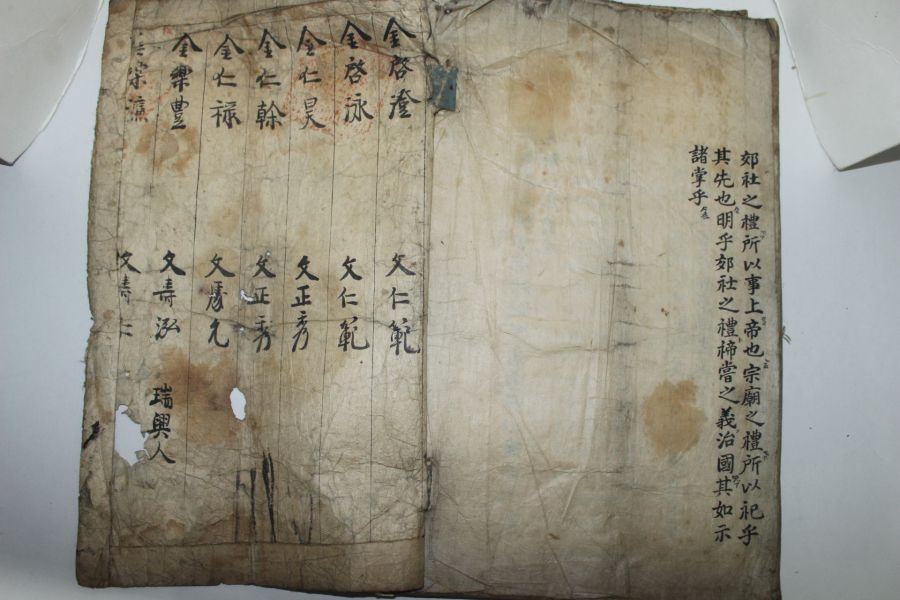 郊社之禮所以事上帝也宗廟之禮所以祀乎
其先也明乎郊社之禮禘嘗之義治國其如示
諸掌乎
金啓澄 文仁範
金啓泳 文仁範
金仁昊 文正秀
金仁幹 文正秀
金仁祿 文 允
金樂豊 文壽泓 瑞興人
宋 文壽